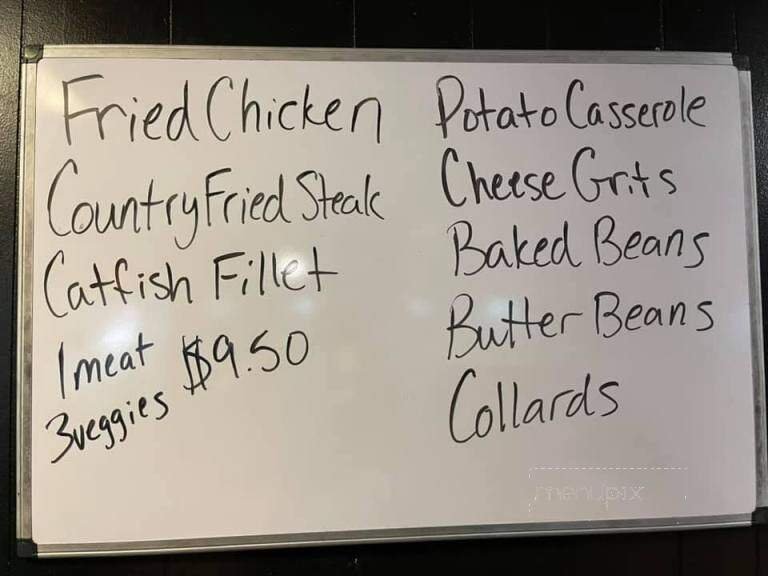 Fried Chicken
Country Fried Steak
Catfish Fillet
1 meat $9.50
3 veggies
Potato Casserole
Cheese Grits
Baked Beans
Butter Beans
Collards
menupix